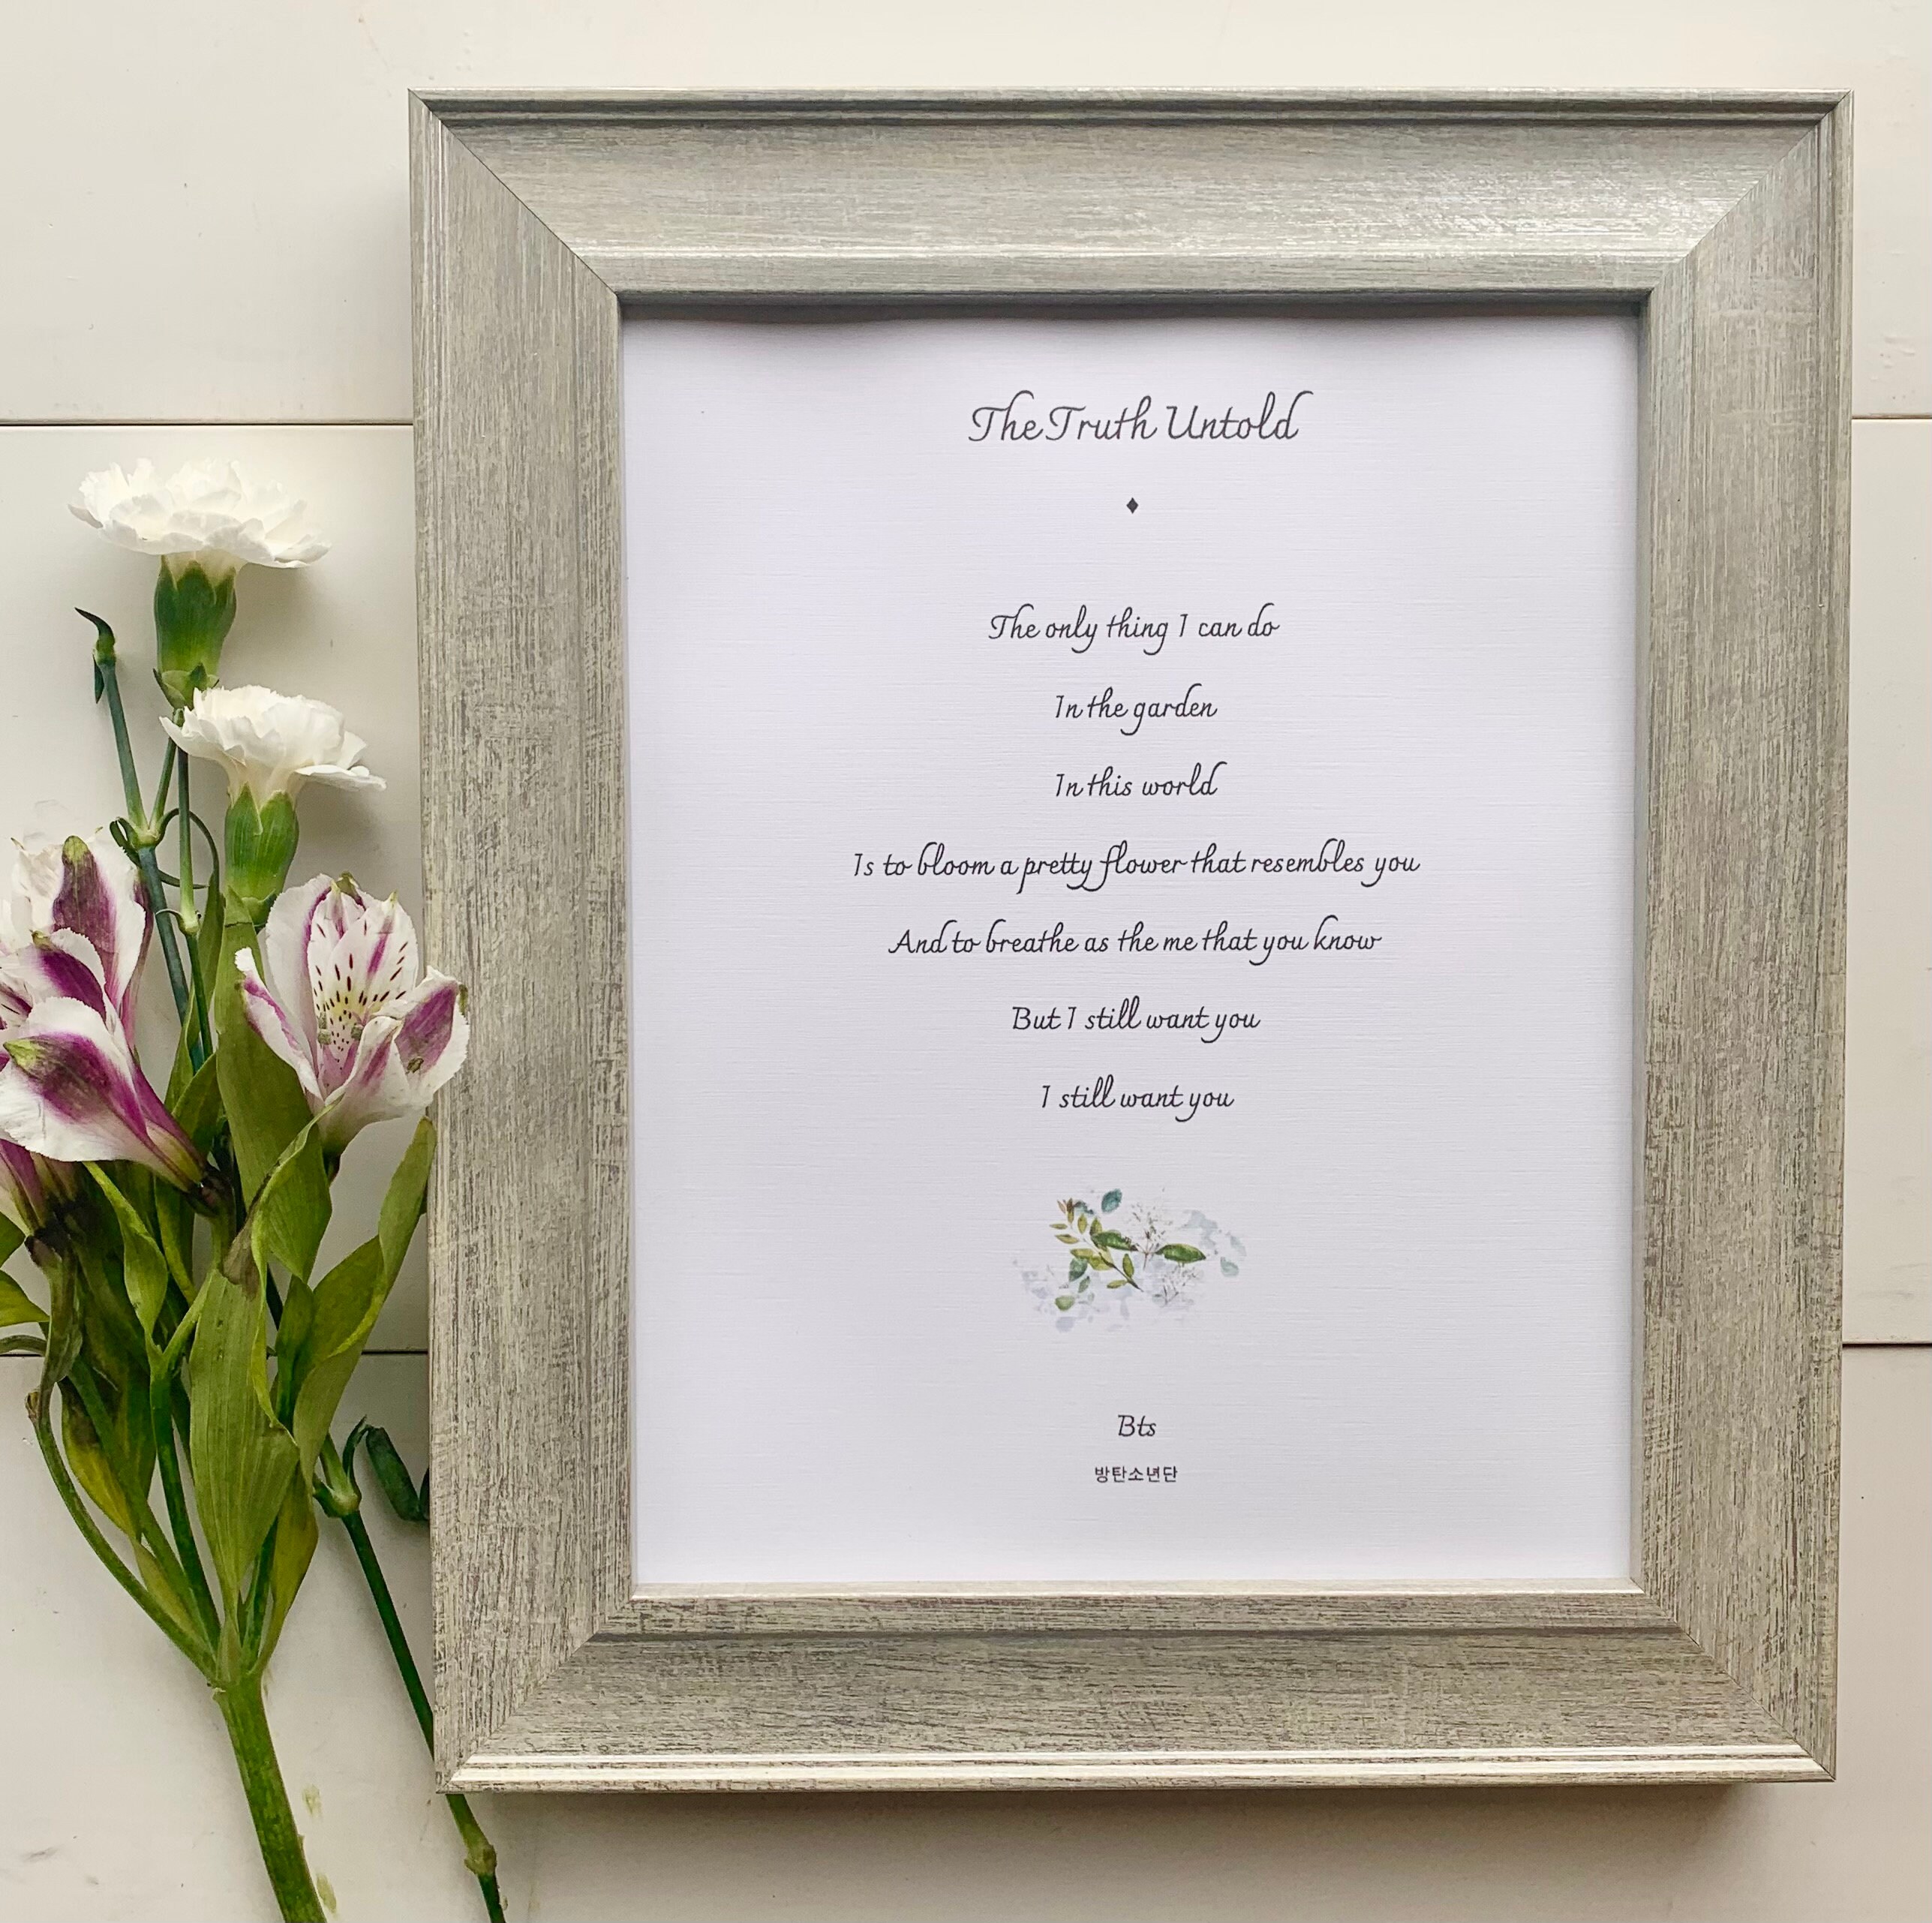 The Truth Untold
The only thing I can do
In the garden
In this world
Is to bloom a pretty flower that resembles you
And to breathe as the me that you know
But I still want you
I still want you
Bts
방탄소년단